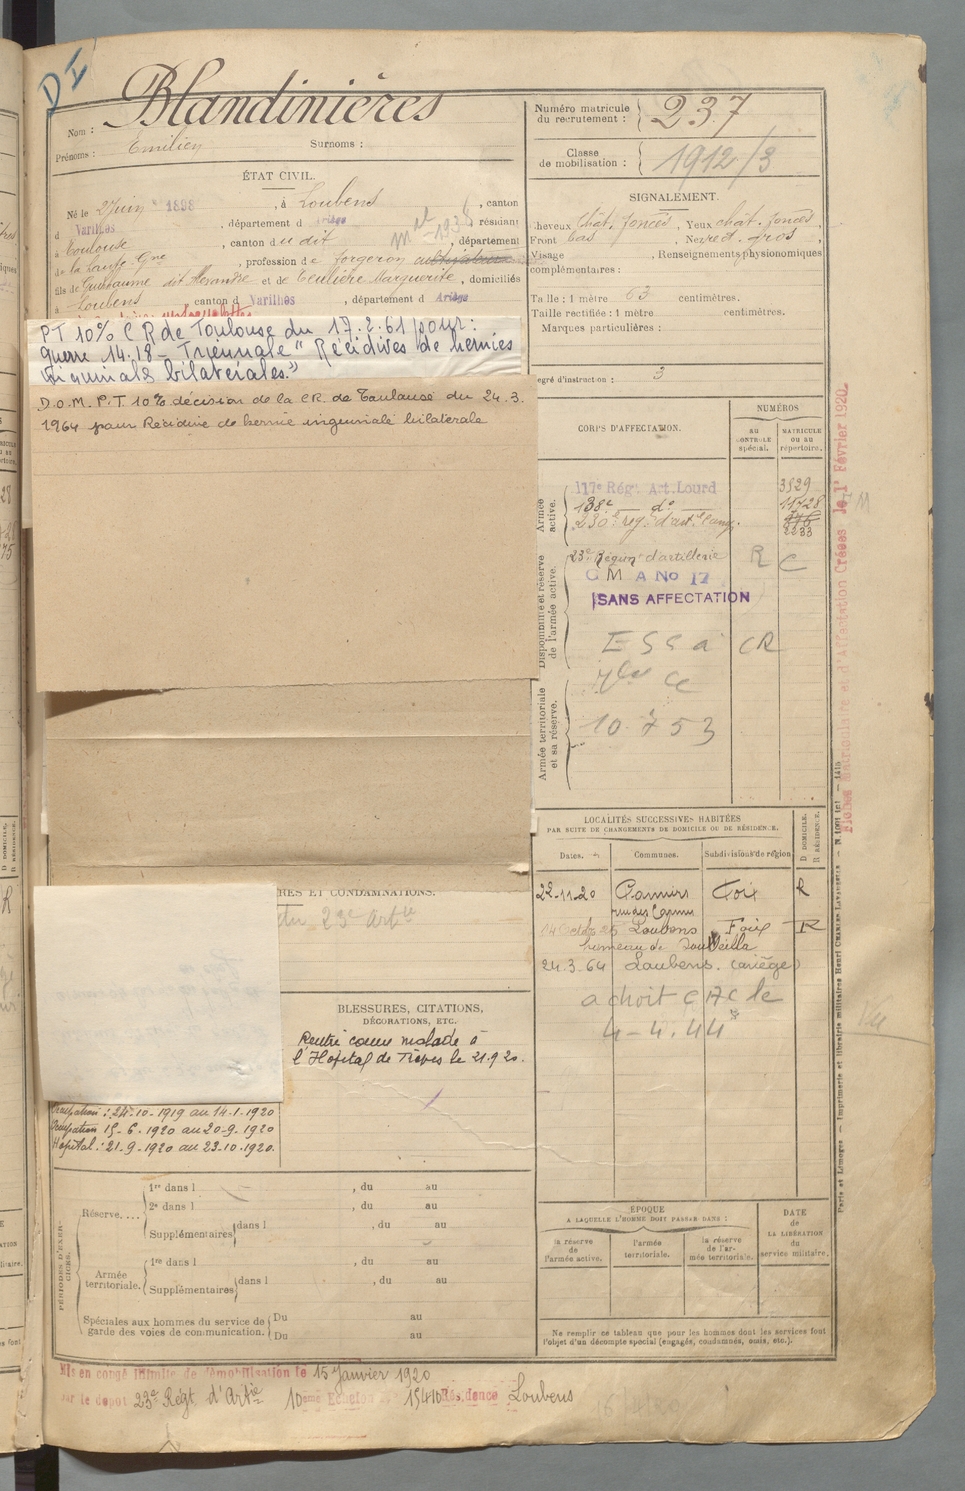 D I
Nom : Blandinières
Prénoms : Emilien Surnoms :
ÉTAT CIVIL.
Né le 2 Juin 1898, à Loubens, canton
d Varilhes, département d Ariège, résidant
à Toulouse, canton du dit, département
de la Haute Gne, profession de forgeron
fils de Guillaume dit Alexandre et de Teulière Marguerite, domiciliés
à Loubens canton d Varilhes, département d Ariège
PT 10% CR de Toulouse du 17.2.61 pour :
guerre 14.18 - Triennale "Récidives de hernies
inguinales bilatérales."
D.O.M. P.T. 10% décision de la CR. de Toulouse du 24.3.
1964 pour Récidive de hernie inguinale bilatérale
ET CONDAMNATIONS.
du 23e Artie
BLESSURES, CITATIONS,
DÉCORATIONS, ETC.
Rentré comme malade à
l'Hôpital de Trèves le 21.9.20.
Occupation : 24-10-1919 au 14-1-1920
Occupation 15-6-1920 au 20-9-1920
Hopital : 21-9-1920 au 23-10-1920.
PÉRIODES D'EXERCICES.
Réserve....
1re dans l , du au
2e dans l , du au
Supplémentaires dans l , du au
Armée territoriale.
1re dans l , du au
Supplémentaires dans l , du au
Spéciales aux hommes du service de
garde des voies de communication.
Du au
Du au
Mis en congé illimité de démobilisation le 15 Janvier 1920
par le dépôt 23e Régt d'Artie 10ème Echelon 15410 Résidence Loubens
Numéro matricule
du recrutement : 237
Classe
de mobilisation : 1912/3
SIGNALEMENT.
Cheveux Chât. foncés, Yeux chât. foncés,
Front bas, Nez rect. gros,
Visage , Renseignements physionomiques
complémentaires :
Taille : 1 mètre 63 centimètres.
Taille rectifiée : 1 mètre centimètres.
Marques particulières :
Degré d'instruction : 3
CORPS D'AFFECTATION.
NUMÉROS
AU CONTROLE spécial.
MATRICULE ou au répertoire.
Armée active.
117e Régt Art. Lourd 3529
138e do 11728
230e rég. d'art. camp. 2233
Disponibilité et réserve de l'armée active.
23e Région d'artillerie R C
C M A No 17
SANS AFFECTATION
CR
Armée territoriale et sa réserve.
10.753
LOCALITÉS SUCCESSIVES HABITÉES
PAR SUITE DE CHANGEMENTS DE DOMICILE OU DE RÉSIDENCE.
Dates. Communes. Subdivisions de région
D DOMICILE.
R RÉSIDENCE.
22-11-20 Pamiers Foix R
rue des Carmes
14 Octobre 26 Loubens Foix R
hameau de
24.3.64 Loubens. (ariège)
a droit C A C le
4-4.44
ÉPOQUE
A LAQUELLE L'HOMME DOIT PASSER DANS :
la réserve de l'armée active.
l'armée territoriale.
la réserve de l'armée territoriale.
DATE de LA LIBÉRATION du service militaire.
Ne remplir ce tableau que pour les hommes dont les services font
l'objet d'un décompte spécial (engagés, condamnés, omis, etc.).
Fiches Matricule et d'Affectation Créées le 1er Février 1920
Paris et Limoges — Imprimerie et librairie militaires Henri CHARLES-LAVAUZELLE